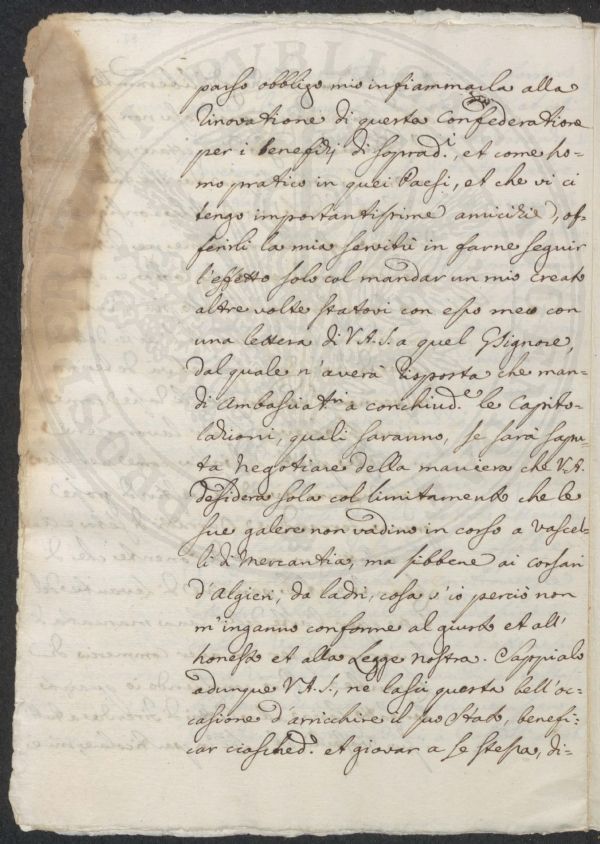 parso obbligo mio infiammarla alla
rinovatione di questa Confederatione
per i benefizij di soprad.i, et come ho=
mo pratico in quei Paesi, et che vi ci
tengo importantissime amicizie, of=
ferirli la mia servitù in farne seguir
l'effetto solo col mandar un mio creato
altre volte statovi con esso meco con
una lettera di V.A.S. a quel GSignore,
dal quale n'averà risposta che man=
di Ambasciat.ri a conchiud.e le Capito=
lazioni, quali saranno, se sarà sapu=
ta negotiare della maniera che V.A.
desidera sola col limitamento che le
sue galere non vadino in corso a vascel=
li di Mercantia, ma sibbene ai corsari
d'Algieri, da ladri, cosa s'io perciò non
m'inganno conforme al giusto et all'
honesto et alla Legge nostra. Sappialo
adunque V.A.S., ne lassi questa bell'oc=
casione d'arricchire il suo Stato, benefi=
car ciasched.o et giovar a se stessa, di=